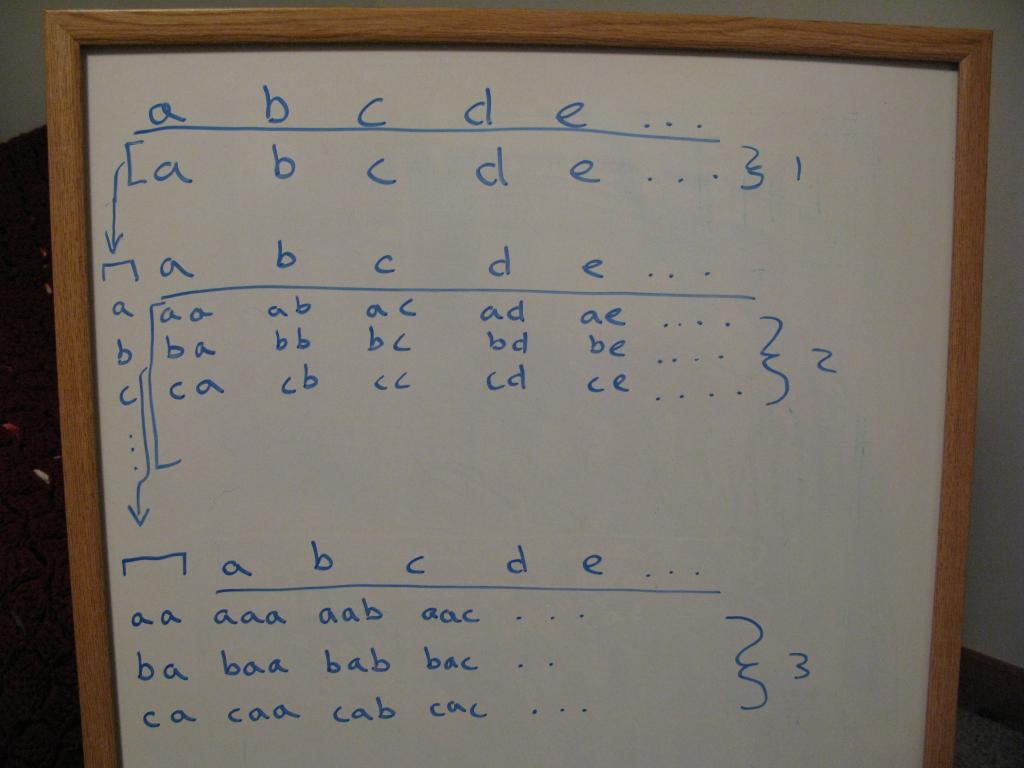 a b c d e ...
a b c d e ... } 1
a b c d e ...
a aa ab ac ad ae ....
b ba bb bc bd be .... } 2
c ca cb cc cd ce ....
⋮
a b c d e ...
aa aaa aab aac ...
ba baa bab bac .. } 3
ca caa cab cac ...